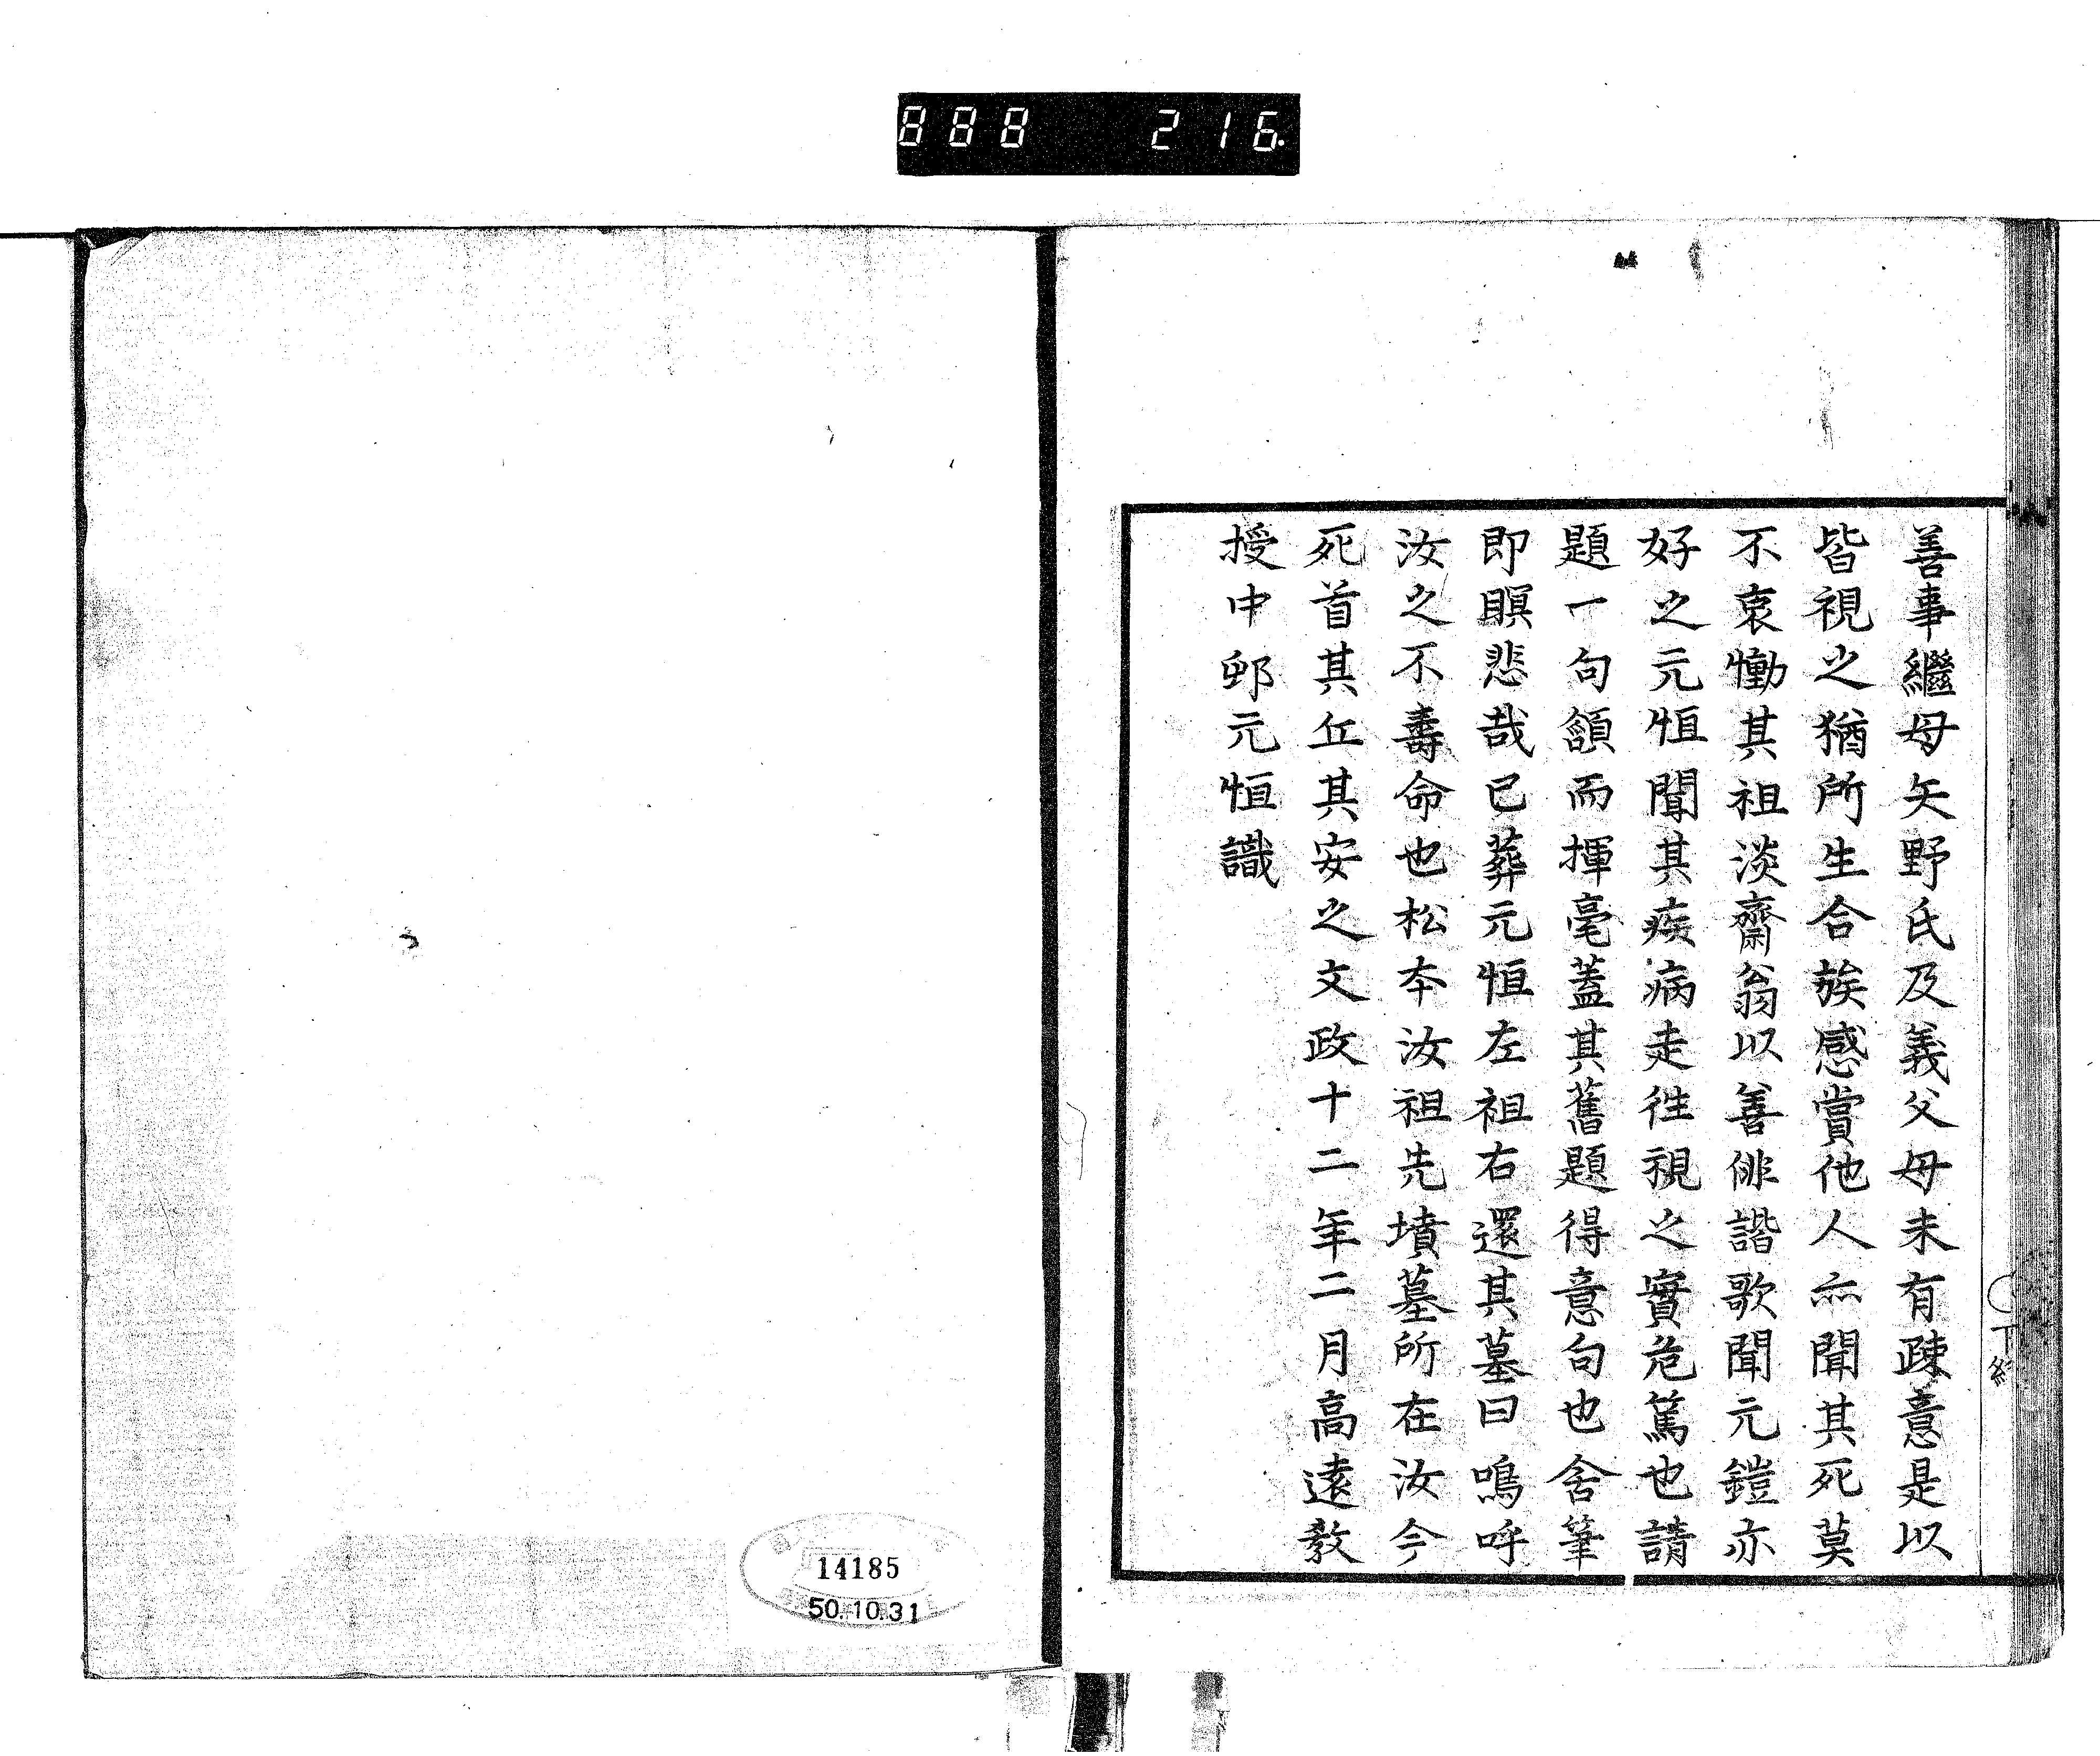 888 216.
善事繼母矢野氏及義父母未有疎意是以
皆視之猶所生合族感賞他人亦聞其死莫
不哀慟其祖淡齋翁以善俳諧歌聞元鎧亦
好之元恒聞其疾病走往視之實危篤也請
題一句頷而揮毫蓋其舊題得意句也舍筆
即瞑悲哉已葬元恒左袒右還其墓曰嗚呼
汝之不壽命也松本汝祖先墳墓所在汝今
死首其丘其安之文政十二年二月高遠教
授中邨元恒識
下終
14185
50.10.31